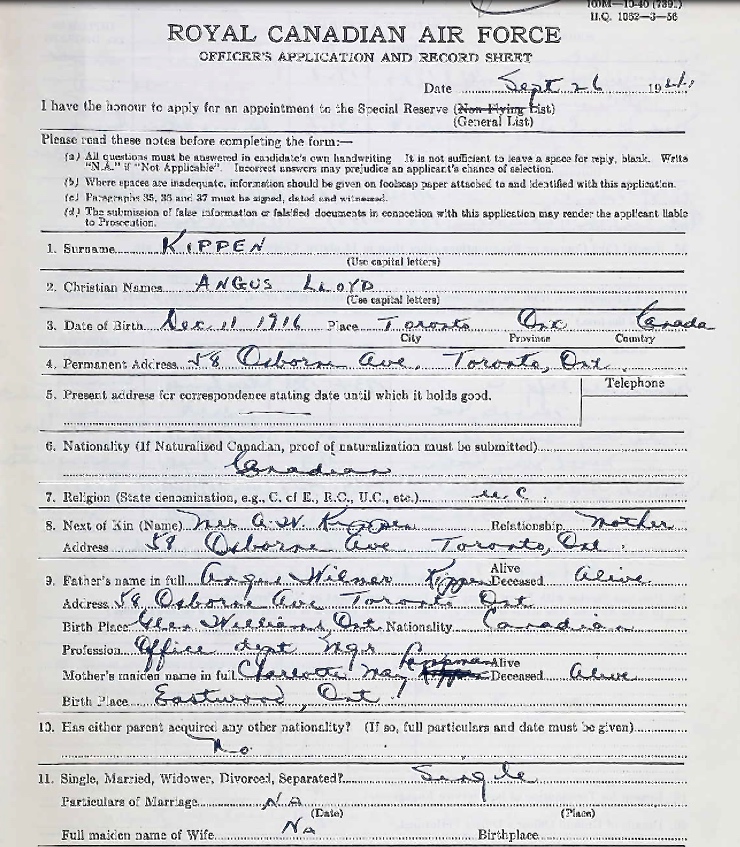 100M—10-40 (7391)
H.Q. 1062—3—56
ROYAL CANADIAN AIR FORCE
OFFICER'S APPLICATION AND RECORD SHEET
Date Sept 26 194
I have the honour to apply for an appointment to the Special Reserve (Non-Flying List)
(General List)
Please read these notes before completing the form:—
(a) All questions must be answered in candidate's own handwriting It is not sufficient to leave a space for reply, blank. Write
"N.A." if "Not Applicable". Incorrect answers may prejudice an applicant's chance of selection.
(b) Where spaces are inadequate, information should be given on foolscap paper attached to and identified with this application.
(c) Paragraphs 35, 36 and 37 must be signed, dated and witnessed.
(d) The submission of false information or falsified documents in connection with this application may render the applicant liable
to Prosecution.
1. Surname KIPPEN
(Use capital letters)
2. Christian Names ANGUS LLOYD
(Use capital letters)
3. Date of Birth Dec 11 1916 Place Toronto Ont Canada
City Province Country
4. Permanent Address 58 Osborne Ave, Toronto, Ont.
Telephone
5. Present address for correspondence stating date until which it holds good.
6. Nationality (If Naturalized Canadian, proof of naturalization must be submitted)
Canadian
7. Religion (State denomination, e.g., C. of E., R.C., U.C., etc.) U.C.
8. Next of Kin (Name) Mrs A. W. Kippen Relationship Mother
Address 58 Osborne Ave Toronto, Ont.
9. Father's name in full Angus Wilmer Kippen Alive Deceased Alive
Address 58 Osborne Ave Toronto Ont
Birth Place Glen Williams, Ont Nationality Canadian
Profession Office dept Mgr
Mother's maiden name in full Charlotte May Alive Deceased Alive
Birth Place Eastwood, Ont
10. Has either parent acquired any other nationality? (If so, full particulars and date must be given)
No
11. Single, Married, Widower, Divorced, Separated? Single
Particulars of Marriage NA
(Date) (Place)
Full maiden name of Wife NA Birthplace